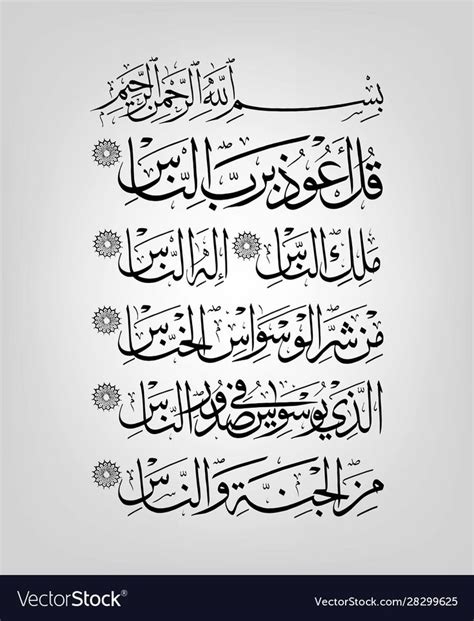 بِسْمِ اللَّهِ الرَّحْمَنِ الرَّحِيمِ
قُلْ أَعُوذُ بِرَبِّ النَّاسِ
مَلِكِ النَّاسِ إِلَهِ النَّاسِ
مِنْ شَرِّ الْوَسْوَاسِ الْخَنَّاسِ
الَّذِي يُوَسْوِسُ فِي صُدُورِ النَّاسِ
مِنَ الْجِنَّةِ وَالنَّاسِ
VectorStock®
VectorStock.com/28299625